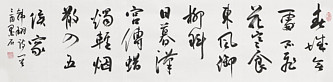 春城無
處不飛
花寒食
東風御
柳斜
日暮漢
宮傳蠟
燭輕煙
散入五
侯家
韓翃詩一首